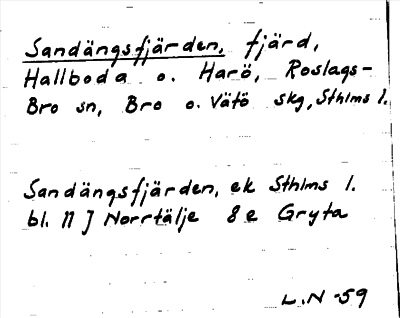 Sandängsfjärden, fjärd,
Hallboda o. Harö, Roslags-
Bro sn, Bro o. Vätö skg, Sthlms l.
Sandängsfjärden, ek Sthlms l.
bl. 11 J Norrtälje 8e Gryta
L.N -59